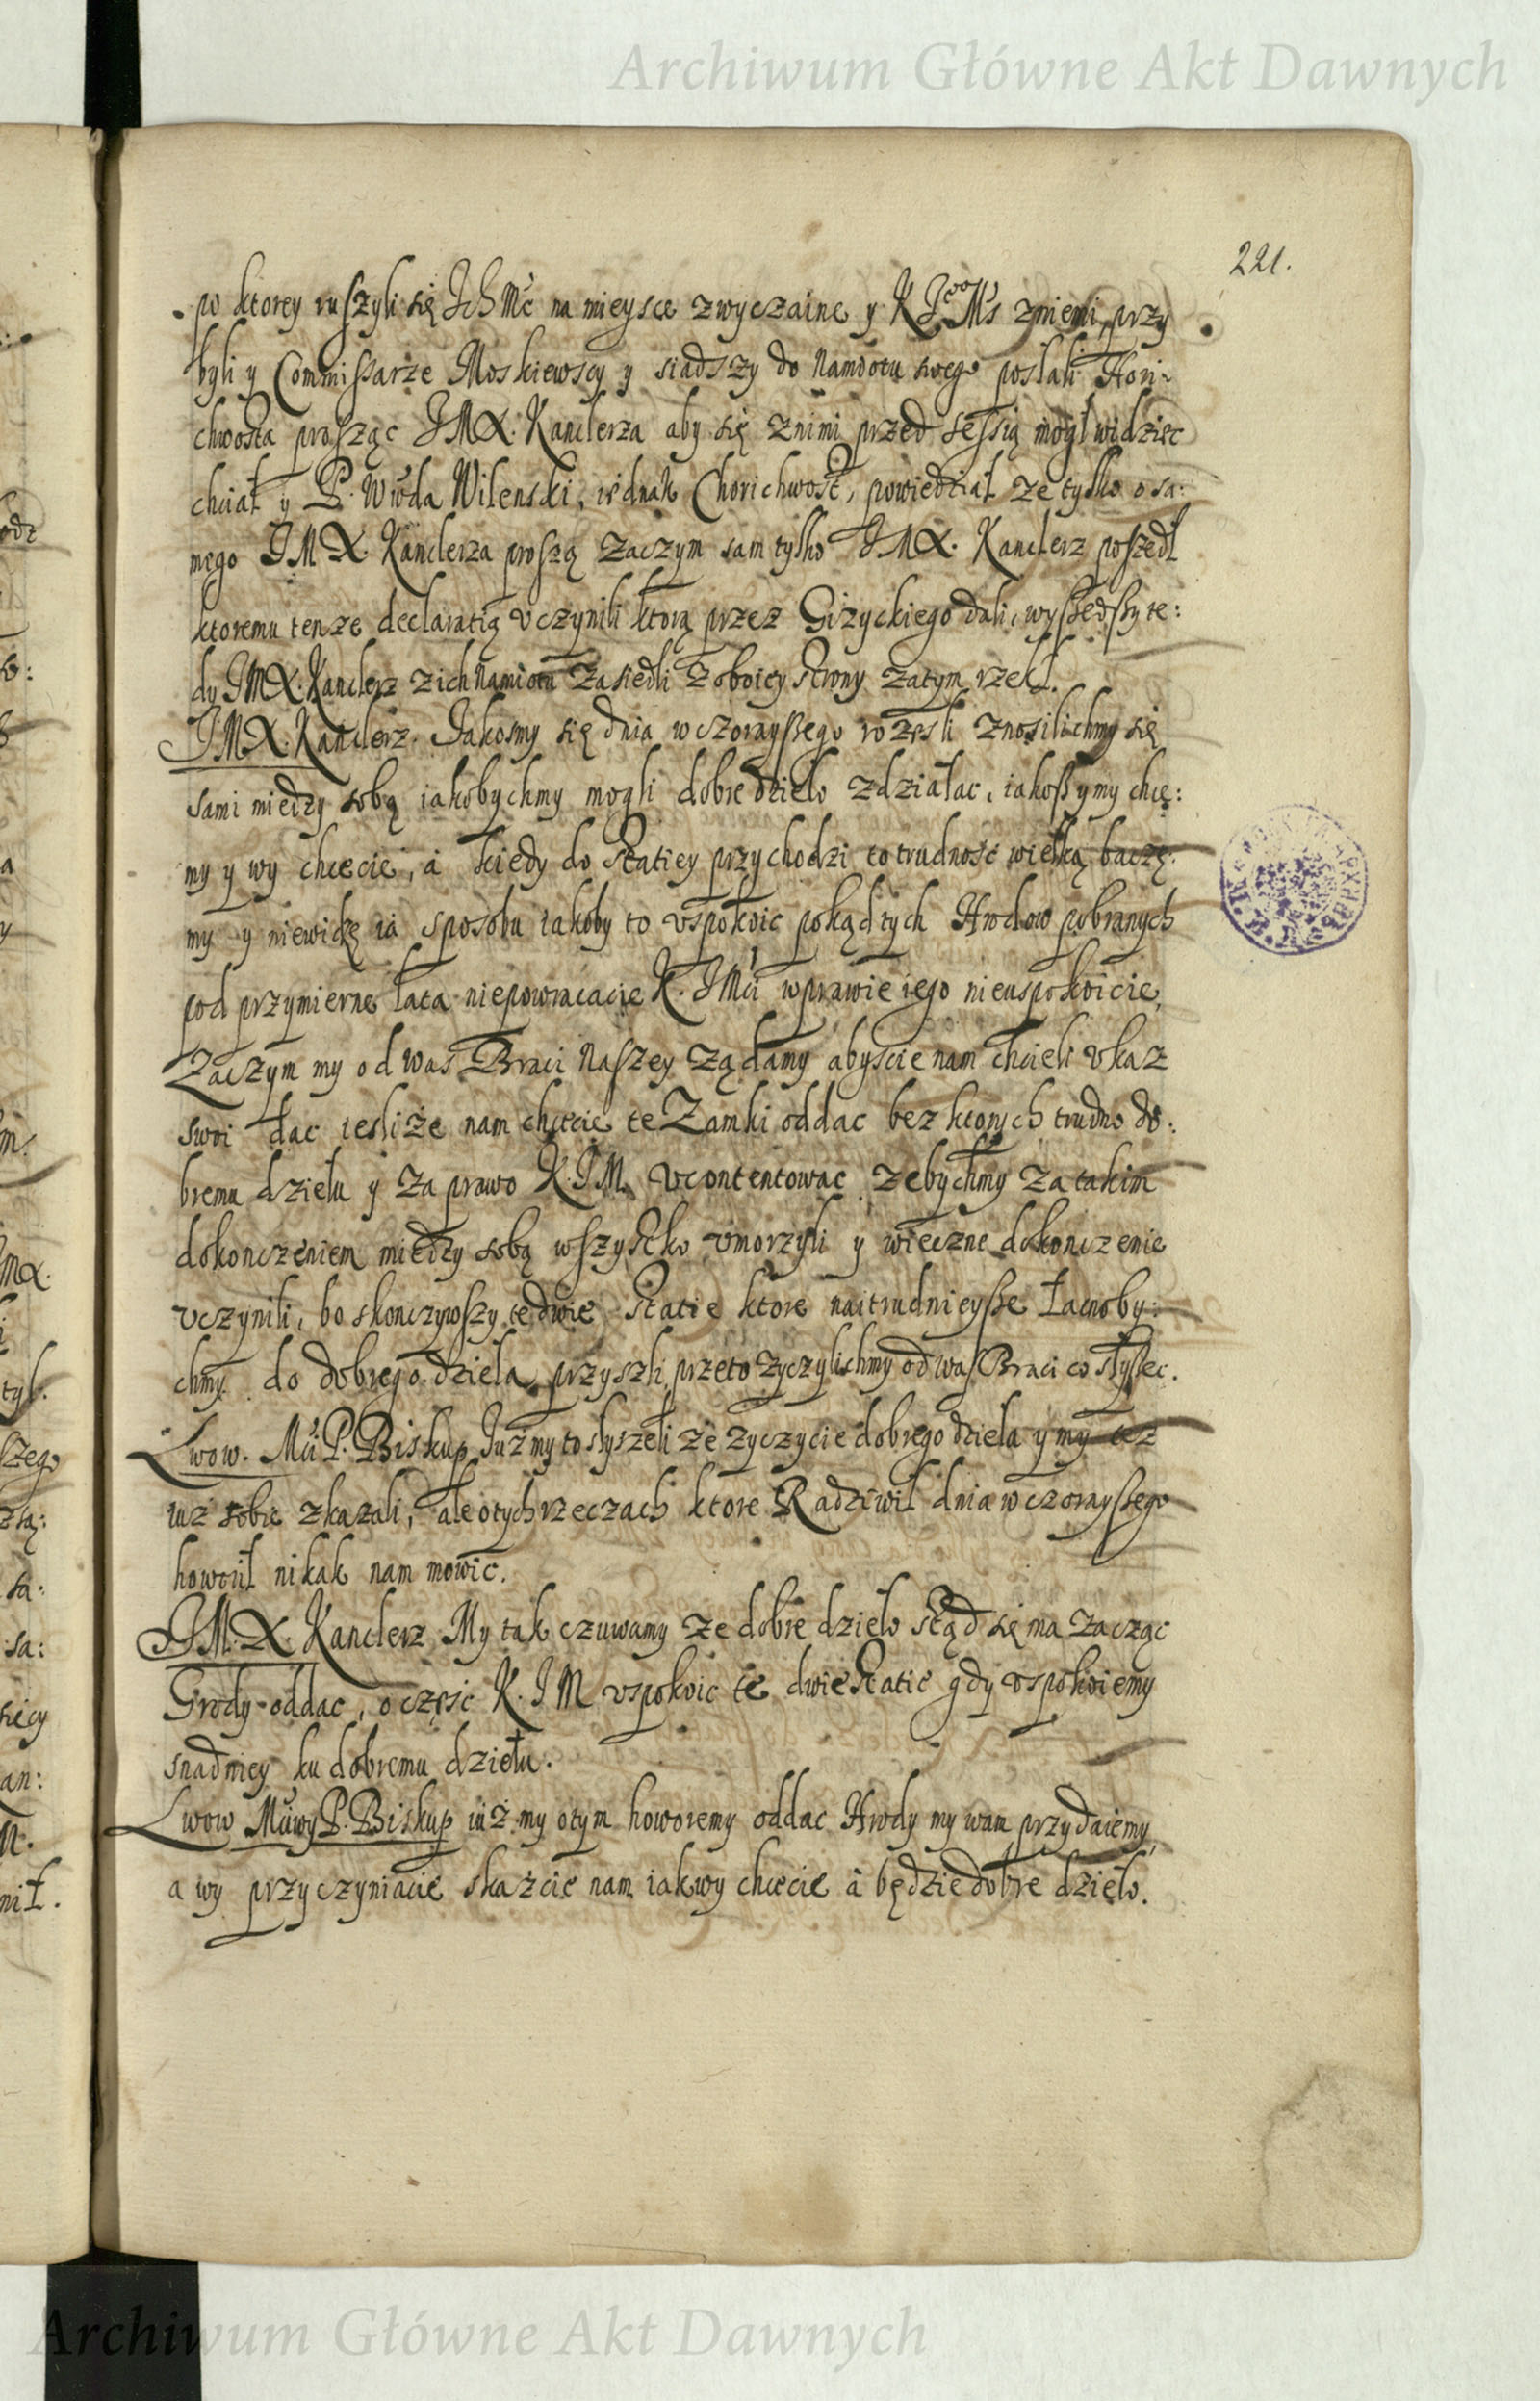 Archiwum Główne Akt Dawnych
221.
po ktorey ruszyli się Ich Mć na mieysce zwyczaine y K JeoMs zniemi, przy
byli y Commissarze Moskiewscy y siadszy do Namiotu swego posłali Hori-
chwosta prosząc JMX. Kanclerza aby się znimi przed sessią mogł widziec
chciał y P. Wwda Wilenski, iednak Chorichwost, powiedział ze tylko o sa:
mego JMX. Kanclerza proszą zaczym sam tylko JMX. Kanclerz poszedł
ktoremu tenze declaratią uczynili ktorą przez Giżyckiego dali, wyszedszy te:
dy JMX. Kanclerz z ich Namiotu zasiedli z oboiey strony zatym rzekł.
JMX. Kanclerz. Jakosmy się dnia wczorayszego rozesli znosilichmy się
sami miedzy sobą iakobychmy mogli dobre dzieło zdziałac, iakoż y my chcę:
my y wy chcecie, a kiedy do statiey przychodzi to trudność wielką baczę:
my y niewidzę ia sposobu iakoby to uspokoic pokąd tych Hrodow pobranych
pod przymierne lata niepowracacie K. JMci wprawie iego nieuspokoicie,
Zaczym my od was Braci Naszey ządamy abyscie nam chcieli ukaz
swoi dac iesliże nam chcecie te Zamki oddac bez ktorych trudno do:
bremu dziełu y za prawo K.JM. ucontentowac zebychmy za takim
dokonczeniem miedzy sobą wszystko umorzyli y wieczne dokonczenie
uczynili, bo skonczywszy te dwie statie ktore naitrudnieysze łacnoby:
chmy do dobrego dzieła przyszli, przeto zyczylichmy od was Braci co słyszec.
Lwow. Mci P. Biskup Juz my to słyszeli ze zyczycie dobrego dzieła y my tez
iuz sobie zkazali, ale o tych rzeczach ktore Radziwił dnia wczorayszego
howorił nikak nam mowic.
JM.X. Kanclerz My tak czuwamy ze dobre dzieło stąd się ma zacząc
Grody oddac, o część K.JM uspokoic te dwie statie gdy uspokoiemy
snadniey ku dobremu dziełu.
Lwow Mci wy P. Biskup iuż my o tym howoremy oddac Hrody my wam przydaiemy,
a wy przyczyniacie skażcie nam iak wy chcecie a będzie dobre dzieło.
Archiwum Główne Akt Dawnych